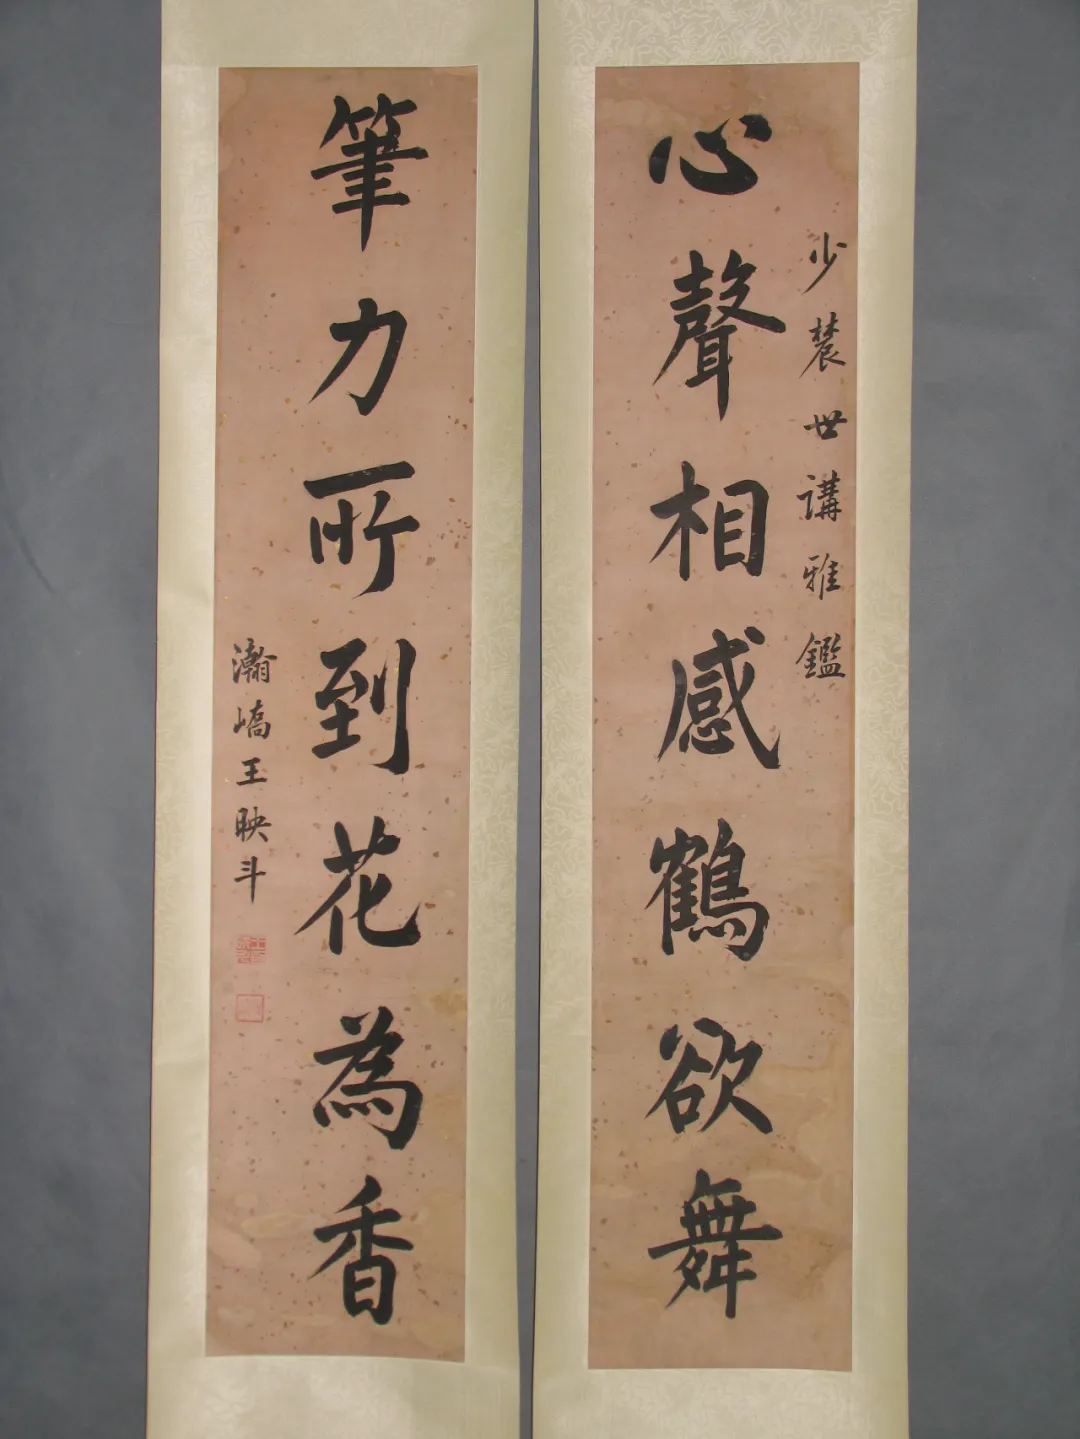 少農世講雅鑑
心聲相感鶴欲舞
筆力所到花為香
瀚嶠王映斗